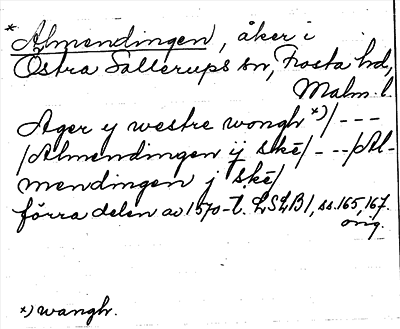 *Almendingen, åker i
Östra Sallerups sn, Frosta hd,
Malm. l.
Ager y westre wongh *)/ - - -
/Almendingen y skē/ - - -/Al-
mendingen j skē/
förra delen av 1570-t. LSLB1, ss. 165, 167.
orig.
*) wangh.